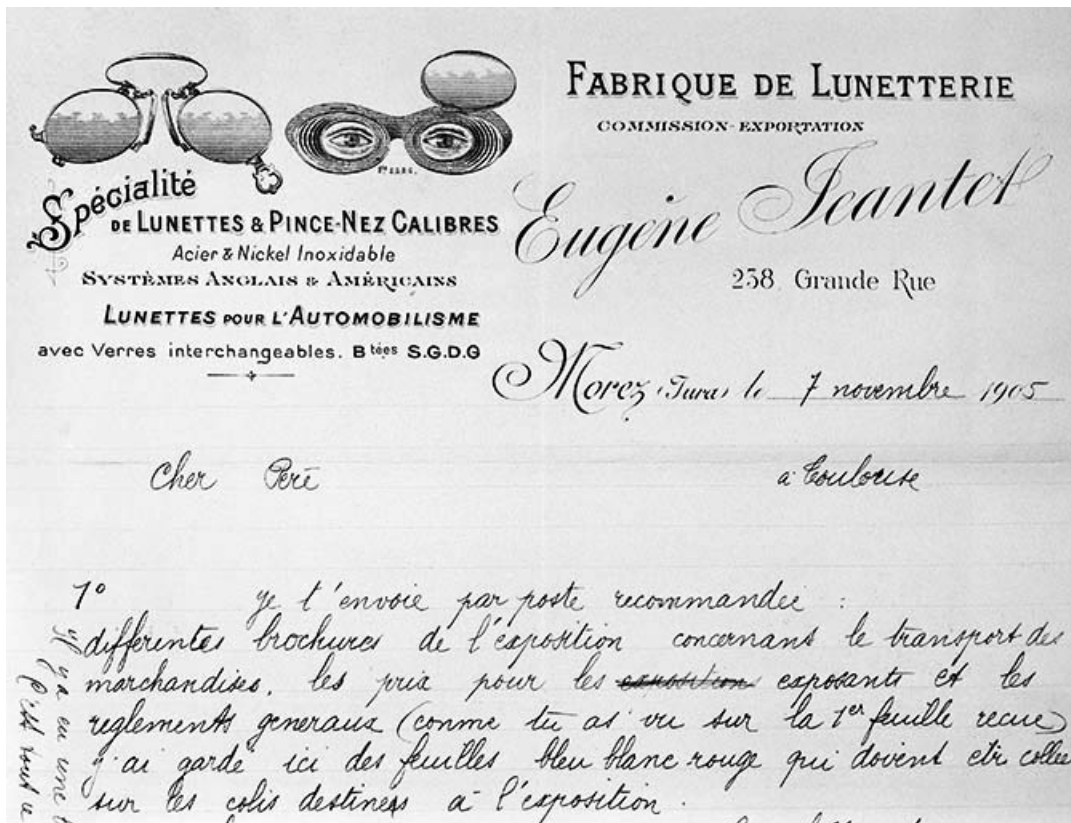 FABRIQUE DE LUNETTERIE
COMMISSION-EXPORTATION
Eugène Jeantet
238, Grande Rue
Spécialité
DE LUNETTES & PINCE-NEZ CALIBRES
Acier & Nickel Inoxidable
SYSTÈMES ANGLAIS & AMÉRICAINS
LUNETTES POUR L'AUTOMOBILISME
avec Verres interchangeables. Btées S.G.D.G
Morez (Jura) le 7 novembre 1905
Cher Peré
a Toulouse
1° je t'envoie par poste recommandée :
differentes brochures de l'exposition concernant le transport des
marchandises, les prix pour les expositions exposants et les
reglements generaux (conme tu as vu sur la 1er feuille recue)
j'ai gardé ici des feuilles bleu blanc rouge qui doivent etr collee
sur les colis destinés a l'exposition.
Il y a eu une
C'est tout ce